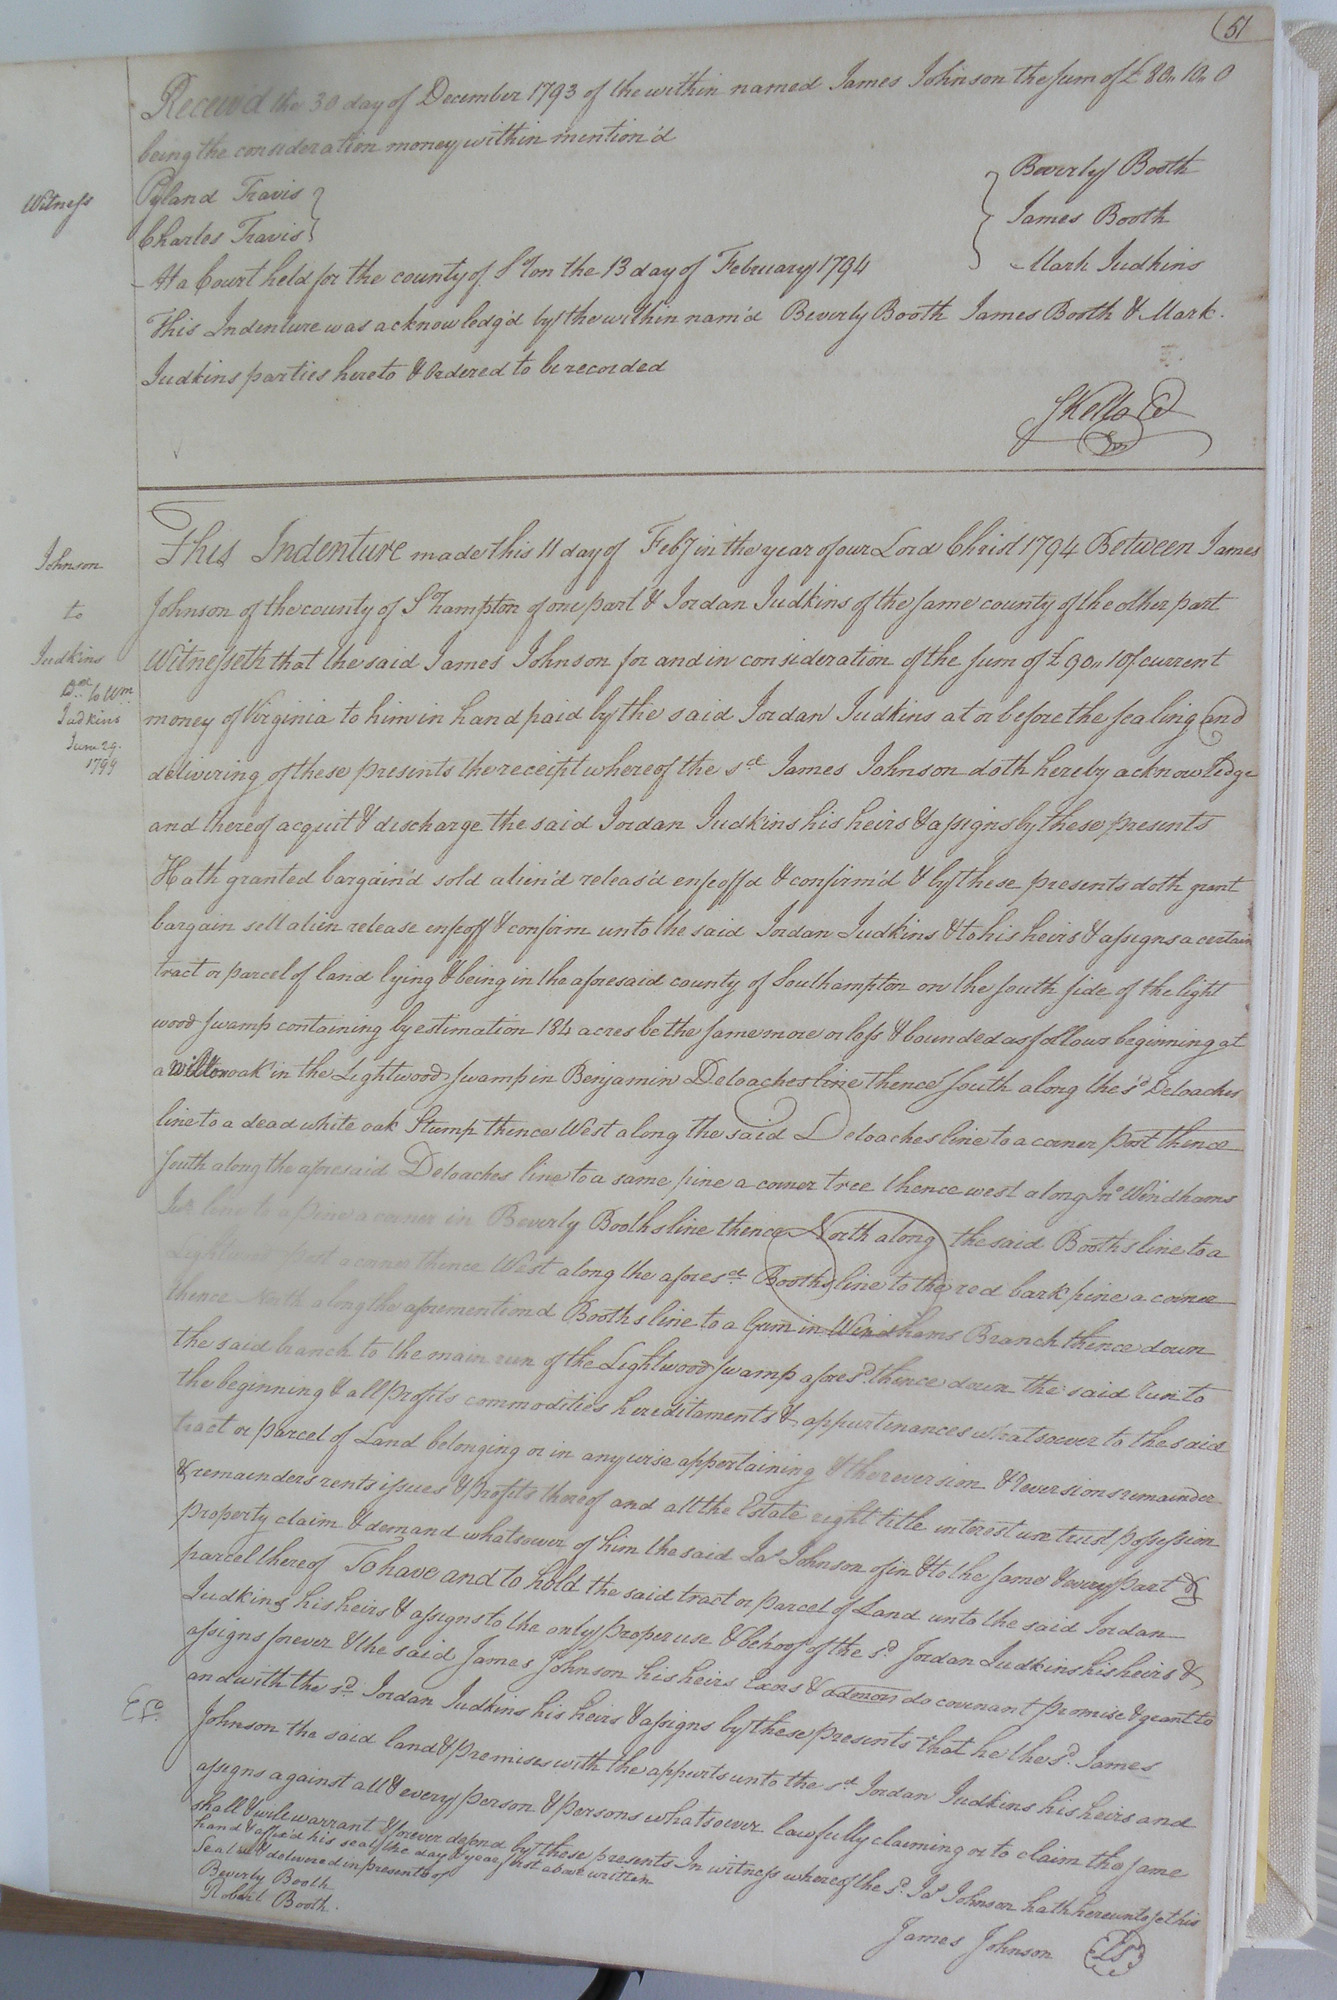 51
Received the 30 day of December 1793 of the within named James Johnson the sum of £ 80,, 10,, 0
being the consideration money within mention'd
Witness
Pyland Travis
Charles Travis
Beverly Booth
James Booth
Mark Judkins
At a Court held for the county of S°ton the 13 day of February 1794
This Indenture was acknowledg'd by the within nam'd Beverly Booth James Booth & Mark
Judkins parties hereto & Ordered to be recorded
S Kello Cl
Johnson
to
Judkins
Dd. to Wm
Judkins
June 29.
1799
This Indenture made this 11 day of Feby in the year of our Lord Christ 1794 Between James
Johnson of the county of S°hampton of one part & Jordan Judkins of the same county of the other part
Witnesseth that the said James Johnson for and in consideration of the sum of £ 90,, 10 of current
money of Virginia to him in hand paid by the said Jordan Judkins at or before the sealing and
delivering of these presents the receipt whereof the sd. James Johnson doth hereby acknowledge
and thereof acquit & discharge the said Jordan Judkins his heirs & assigns by these presents
Hath granted bargain'd sold alien'd releas'd enfeoff'd & confirm'd & by these presents doth grant
bargain sell alien release enfeoff & confirm unto the said Jordan Judkins & to his heirs & assigns a certain
tract or parcel of land lying & being in the aforesaid county of Southampton on the south side of the light
wood swamp containing by estimation 184 acres be the same more or less & bounded as follows beginning at
a willow oak in the Lightwood swamp in Benjamin Deloaches line thence South along the sd. Deloaches
line to a dead white oak Stump thence West along the said Deloaches line to a corner post thence
south along the aforesaid Deloaches line to a same pine a corner tree thence west along Jno Windhams
Jur line to a pine a corner in Beverly Booths line thence North along the said Booths line to a
Lightwood post a corner thence West along the aforesd. Booths line to the red bark pine a corner
thence North along the aforementiond Booths line to a Gum in Windhams Branch thence down
the said branch to the main run of the Lightwood swamp aforesd. thence down the said run to
the beginning & all profits commodities hereditaments & appurtinances whatsoever to the said
tract or parcel of Land belonging or in any wise appertaining & the reversion & reversions remainder
& remainders rents issues & profits thereof and all the Estate right title interest use trust possession
property claim & demand whatsoever of him the said Jas Johnson of in & to the same & every part &
parcel thereof To have and to hold the said tract or parcel of Land unto the said Jordan
Judkins his heirs & assigns to the only proper use & behoof of the sd. Jordan Judkins his heirs &
assigns forever & the said James Johnson his heirs Exors & admors do covenant promise & grant to
and with the sd. Jordan Judkins his heirs & assigns by these presents that he the sd. James
Johnson the said land & premises with the appurts unto the sd. Jordan Judkins his heirs and
assigns against all & every person & persons whatsoever lawfully claiming or to claim the same
shall & will warrant & forever defend by these presents In witness whereof the sd. Jas Johnson hath hereunto set his
hand & affix'd his seal the day & year first above written
Seal'd & delivered in presents of
Beverly Booth
Robert Booth.
James Johnson LS